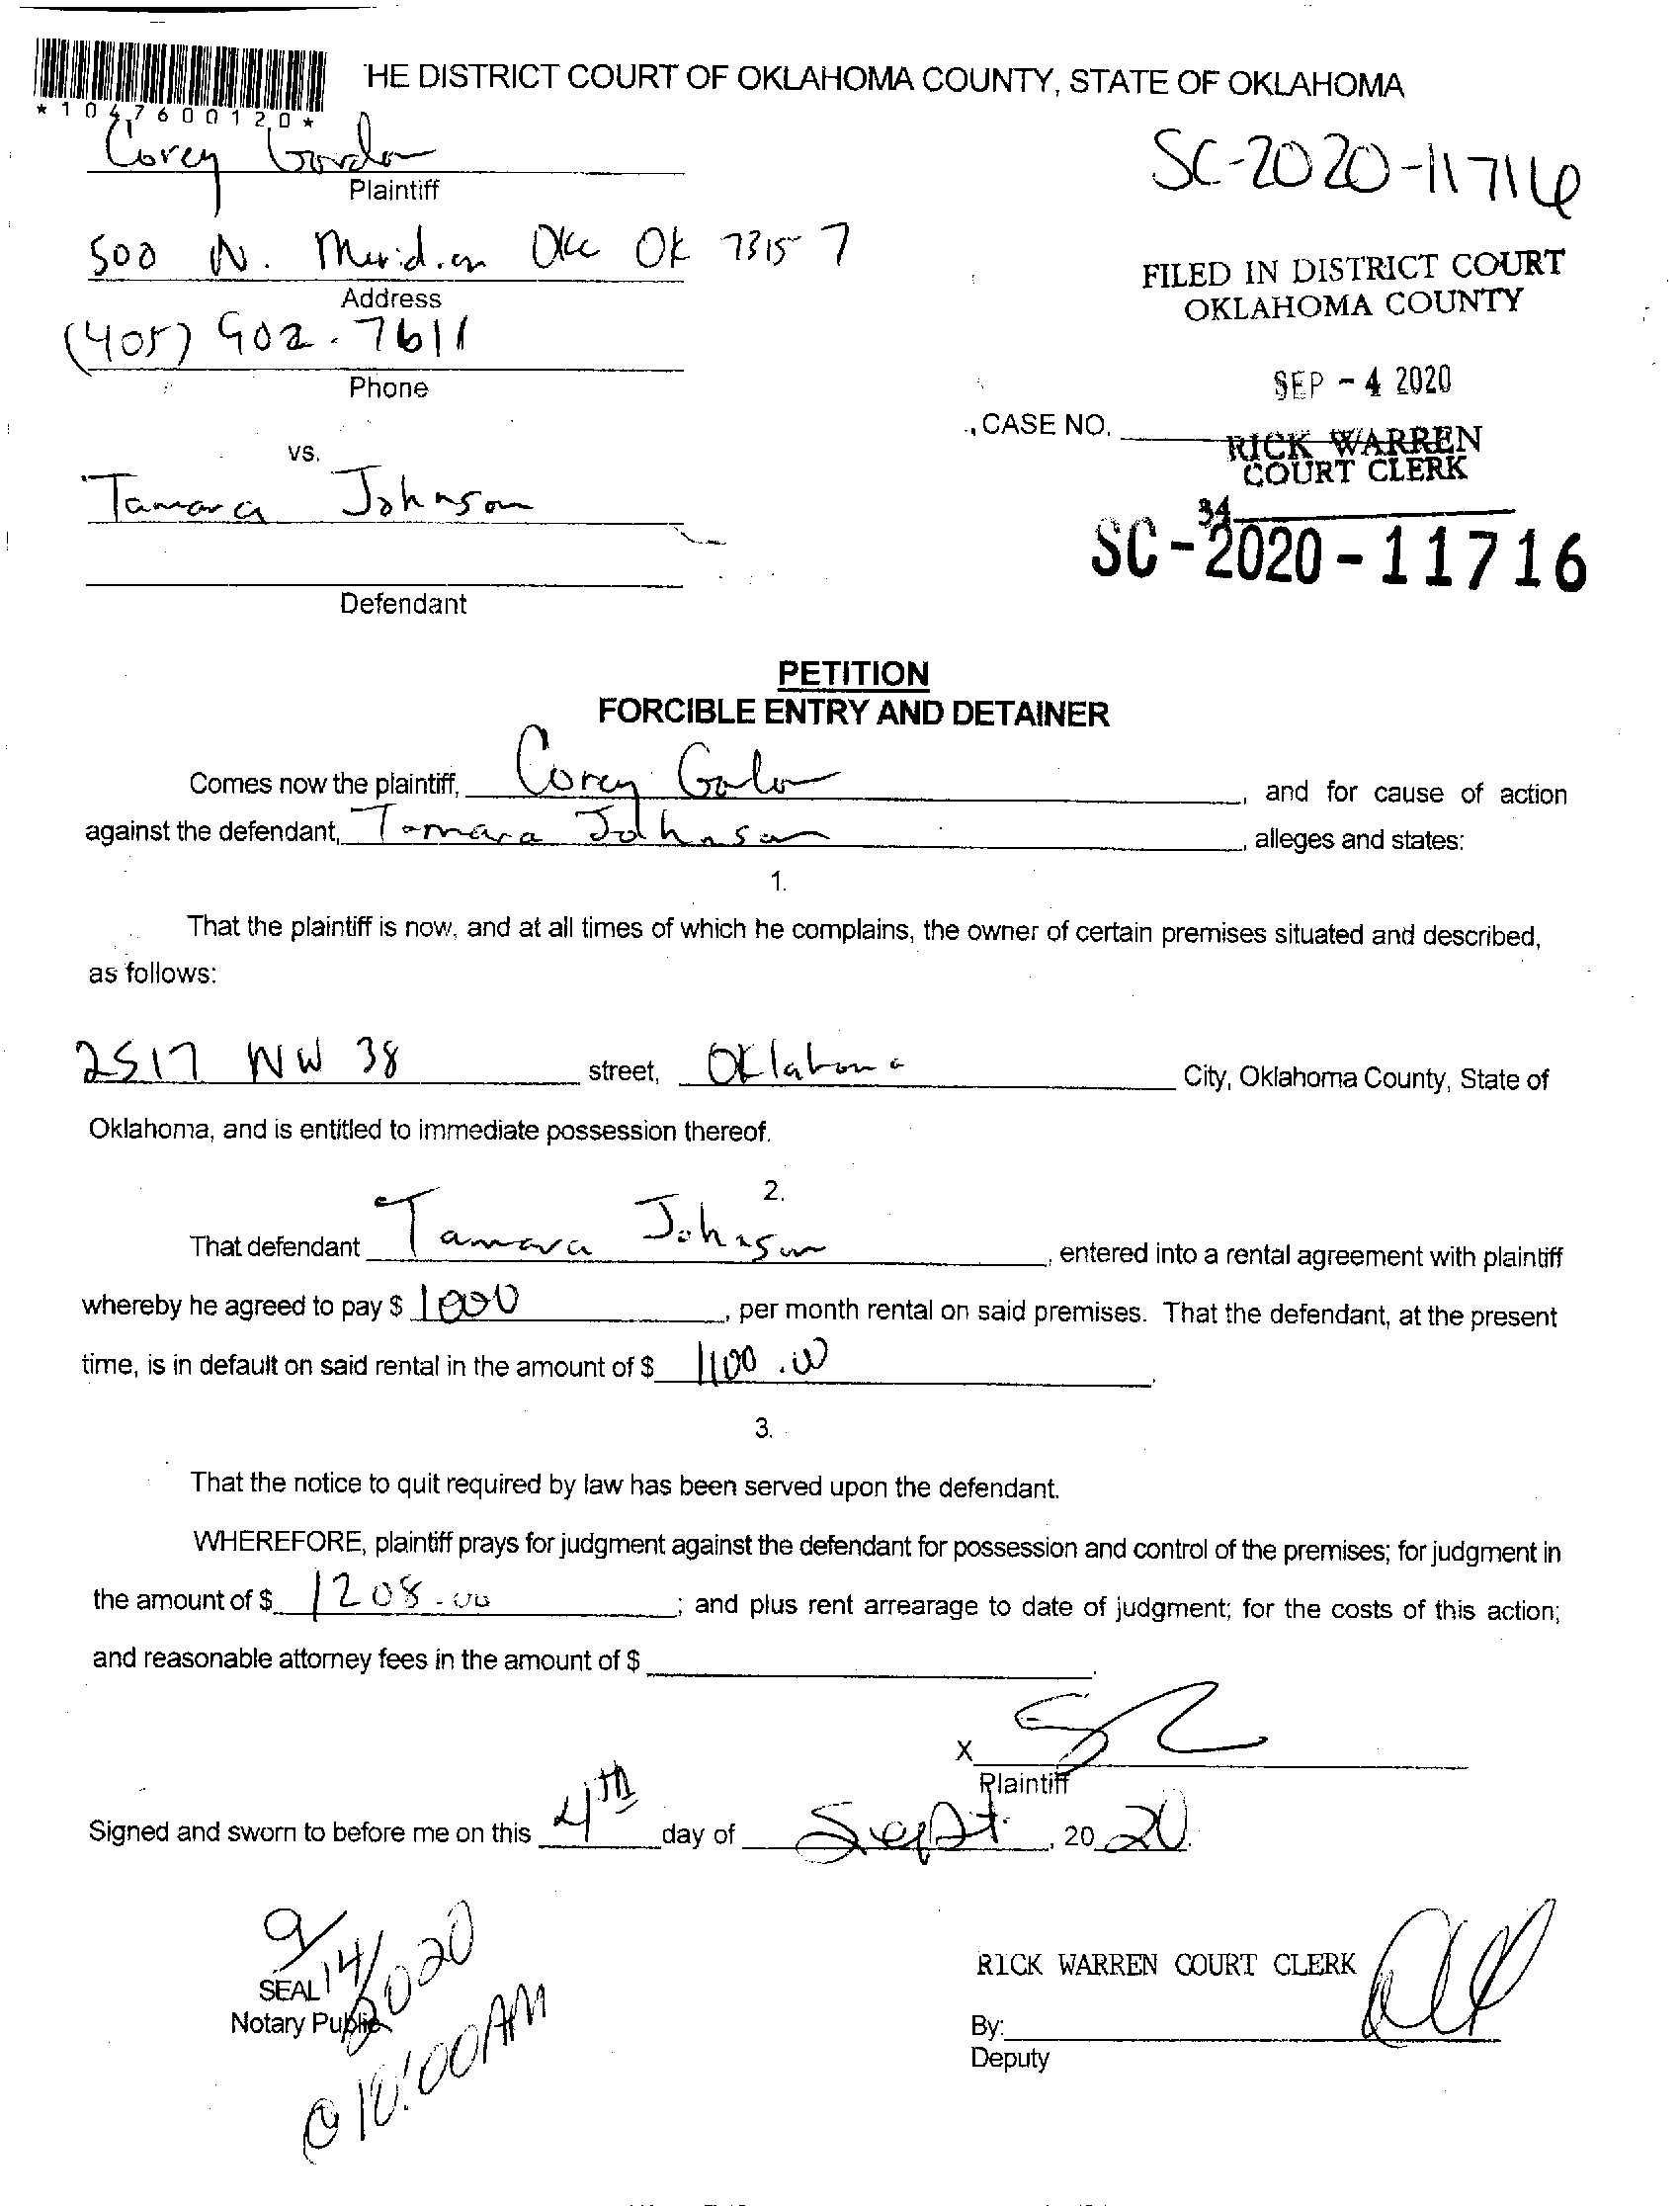 'HE DISTRICT COURT OF OKLAHOMA COUNTY, STATE OF OKLAHOMA
*1047600120*
Corey Gordon
Plaintiff
SC-2020-11716
500 N. Meridian Okc Ok 73157
Address
FILED IN DISTRICT COURT
OKLAHOMA COUNTY
(405) 902-7611
Phone
SEP - 4 2020
, CASE NO.
RICK WARREN
COURT CLERK
vs.
Tamara Johnson
34
SC-2020-11716
Defendant
PETITION
FORCIBLE ENTRY AND DETAINER
Comes now the plaintiff, Corey , and for cause of action
against the defendant, Tamara Johnson , alleges and states:
1.
That the plaintiff is now, and at all times of which he complains, the owner of certain premises situated and described,
as follows:
2517 NW 38 street, Oklahoma City, Oklahoma County, State of
Oklahoma, and is entitled to immediate possession thereof.
2.
That defendant Tamara Johnson , entered into a rental agreement with plaintiff
whereby he agreed to pay $ 1000 , per month rental on said premises. That the defendant, at the present
time, is in default on said rental in the amount of $ 1100.00 .
3.
That the notice to quit required by law has been served upon the defendant.
WHEREFORE, plaintiff prays for judgment against the defendant for possession and control of the premises; for judgment in
the amount of $ 1208.00 ; and plus rent arrearage to date of judgment; for the costs of this action;
and reasonable attorney fees in the amount of $ .
X
Plaintiff
Signed and sworn to before me on this 4th day of Sept. , 20 20.
9/14/2020
@ 10:00AM
SEAL
Notary Public
RICK WARREN COURT CLERK
By:
Deputy